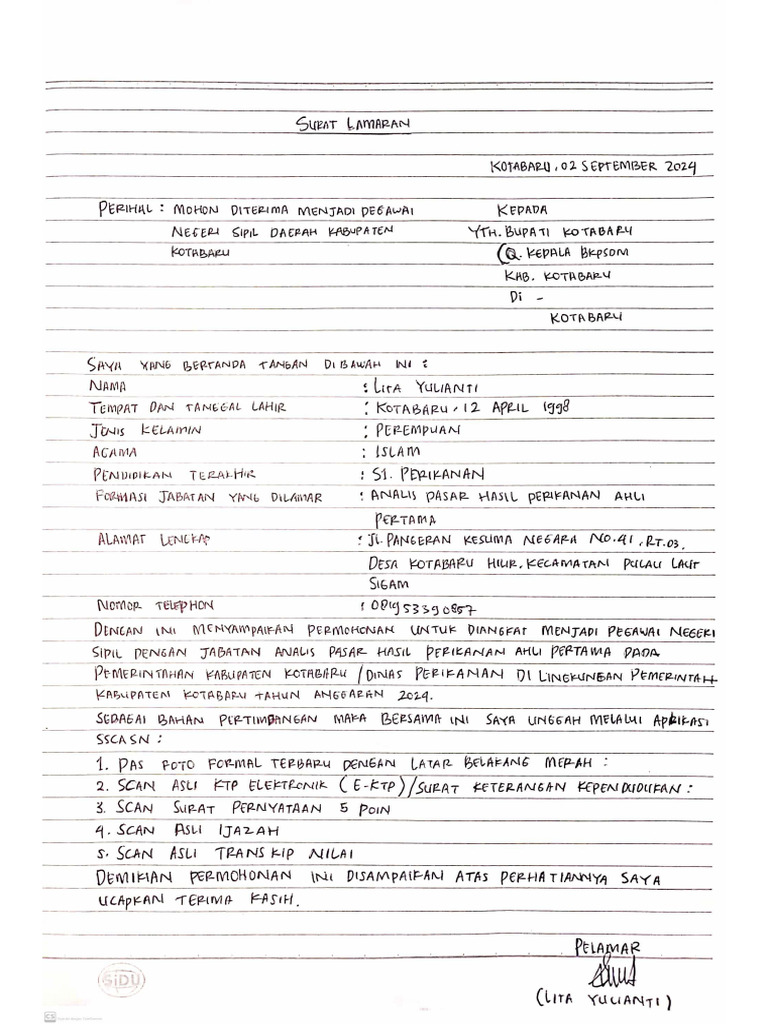 SURAT LAMARAN
KOTABARU, 02 SEPTEMBER 2024
PERIHAL : MOHON DITERIMA MENJADI PEGAWAI KEPADA
NEGERI SIPIL DAERAH KABUPATEN YTH. BUPATI KOTABARU
KOTABARU CQ. KEPALA BKPSDM
KAB. KOTABARU
Di -
KOTABARU
SAYA YANG BERTANDA TANGAN DIBAWAH INI :
NAMA : LITA YULIANTI
TEMPAT DAN TANGGAL LAHIR : KOTABARU, 12 APRIL 1998
JENIS KELAMIN : PEREMPUAN
AGAMA : ISLAM
PENDIDIKAN TERAKHIR : S1. PERIKANAN
FORMASI JABATAN YANG DILAMAR : ANALIS PASAR HASIL PERIKANAN AHLI
PERTAMA
ALAMAT LENGKAP : Jl. PANGERAN KESUMA NEGARA NO.41, RT.03,
DESA KOTABARU HILIR, KECAMATAN PULAU LAUT
SIGAM
NOMOR TELEPHON : 081953390857
DENGAN INI MENYAMPAIKAN PERMOHONAN UNTUK DIANGKAT MENJADI PEGAWAI NEGERI
SIPIL DENGAN JABATAN ANALIS PASAR HASIL PERIKANAN AHLI PERTAMA PADA
PEMERINTAHAN KABUPATEN KOTABARU / DINAS PERIKANAN DI LINGKUNGAN PEMERINTAH
KABUPATEN KOTABARU TAHUN ANGGARAN 2024.
SEBAGAI BAHAN PERTIMBANGAN MAKA BERSAMA INI SAYA UNGGAH MELALUI APLIKASI
SSCASN :
1. PAS FOTO FORMAL TERBARU DENGAN LATAR BELAKANG MERAH :
2. SCAN ASLI KTP ELEKTRONIK (E-KTP) / SURAT KETERANGAN KEPENDUDUKAN :
3. SCAN SURAT PERNYATAAN 5 POIN
4. SCAN ASLI IJAZAH
5. SCAN ASLI TRANSKIP NILAI
DEMIKIAN PERMOHONAN INI DISAMPAIKAN ATAS PERHATIANNYA SAYA
UCAPKAN TERIMA KASIH.
PELAMAR
SiDU
(LITA YULIANTI)
CS